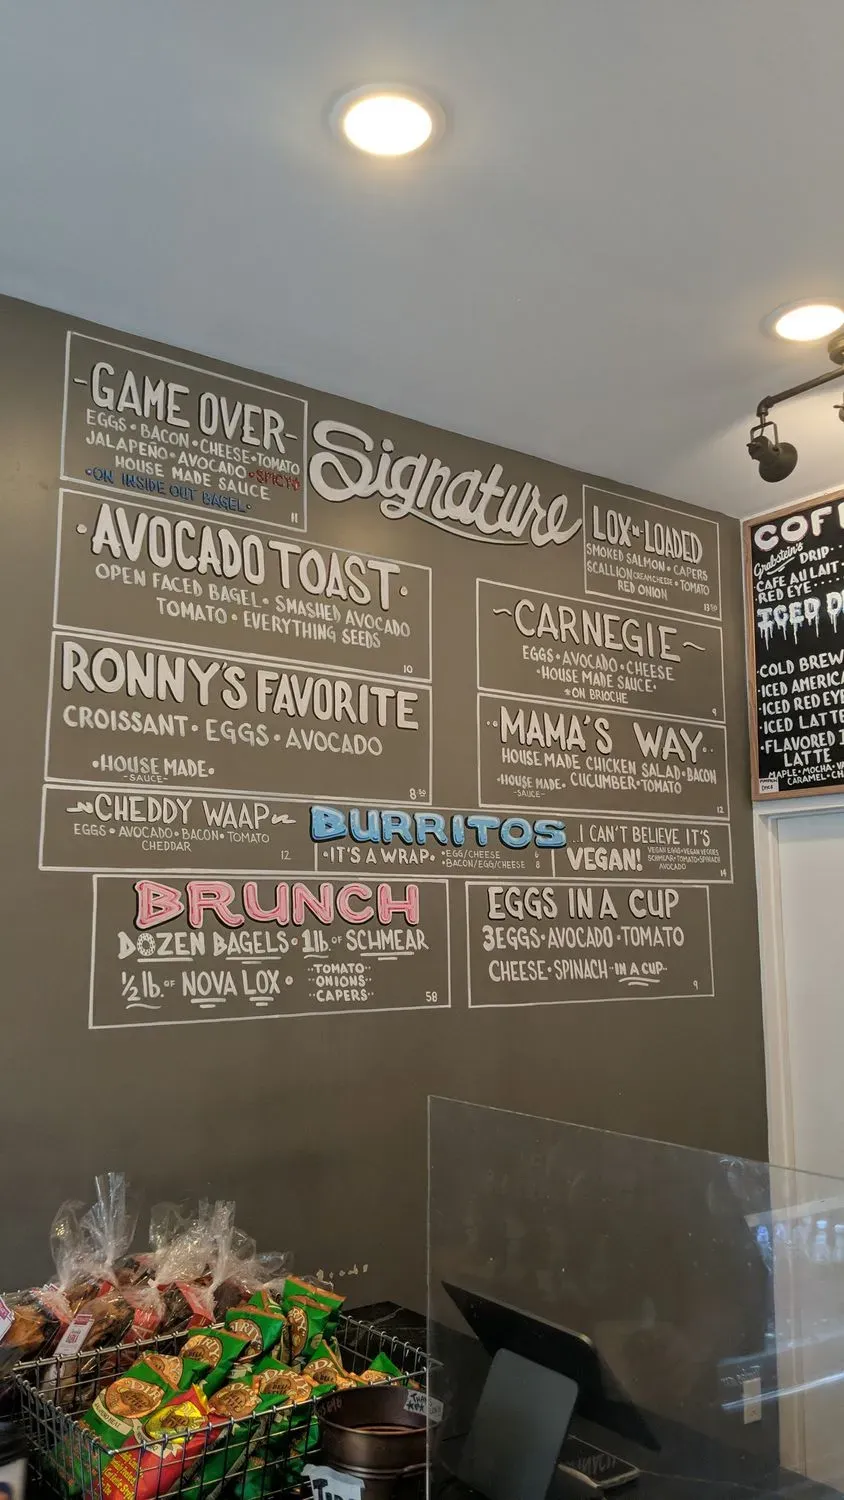 -GAME OVER-
EGGS • BACON • CHEESE • TOMATO
JALAPEÑO • AVOCADO • SPICY
HOUSE MADE SAUCE
• ON INSIDE OUT BAGEL •
11
Signature
LOX-N-LOADED
SMOKED SALMON • CAPERS
SCALLION CREAM CHEESE • TOMATO
RED ONION
13 50
• AVOCADO TOAST •
OPEN FACED BAGEL • SMASHED AVOCADO
TOMATO • EVERYTHING SEEDS
10
~CARNEGIE~
EGGS • AVOCADO • CHEESE
• HOUSE MADE SAUCE •
*ON BRIOCHE
9
RONNY'S FAVORITE
CROISSANT • EGGS • AVOCADO
• HOUSE MADE •
-SAUCE-
8 50
··MAMA'S WAY··
HOUSE MADE CHICKEN SALAD • BACON
• HOUSE MADE • CUCUMBER • TOMATO
-SAUCE-
12
~CHEDDY WAAP~
EGGS • AVOCADO • BACON • TOMATO
CHEDDAR
12
BURRITOS
• IT'S A WRAP •
• EGG/CHEESE 6
• BACON/EGG/CHEESE 8
I CAN'T BELIEVE IT'S
VEGAN!
VEGAN EGGS • VEGAN VEGGIES
SCHMEAR • TOMATO • SPINACH
AVOCADO
14
BRUNCH
DOZEN BAGELS • 1lb. OF SCHMEAR
½ lb. OF NOVA LOX •
··TOMATO··
··ONIONS··
··CAPERS··
58
EGGS IN A CUP
3 EGGS • AVOCADO • TOMATO
CHEESE • SPINACH ··IN A CUP··
9
COF
Grabstein's DRIP
CAFE AU LAIT
RED EYE
ICED D
• COLD BREW
• ICED AMERICA
• ICED RED EYE
• ICED LATTE
• FLAVORED I
LATTE
MAPLE • MOCHA • VA
CARAMEL • CH